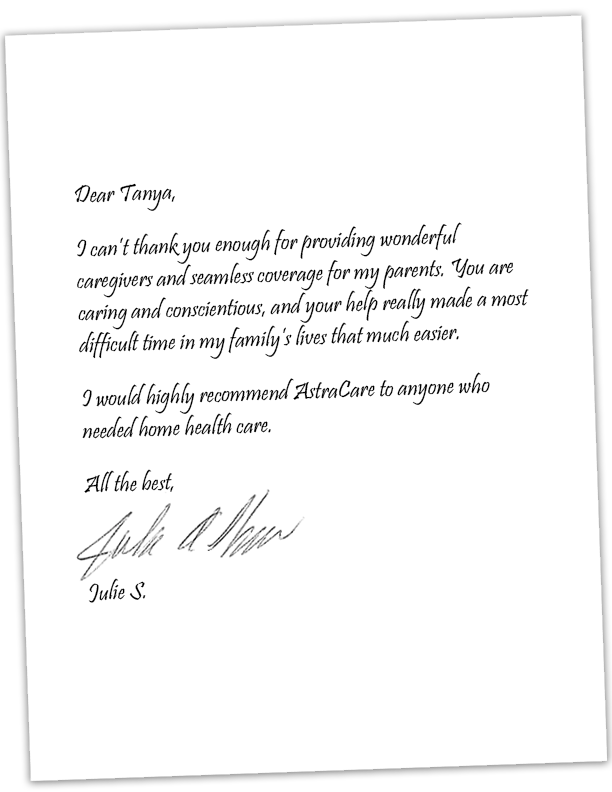 Dear Tanya,
I can't thank you enough for providing wonderful
caregivers and seamless coverage for my parents. You are
caring and conscientious, and your help really made a most
difficult time in my family's lives that much easier.
I would highly recommend AstraCare to anyone who
needed home health care.
All the best,
Julie S.